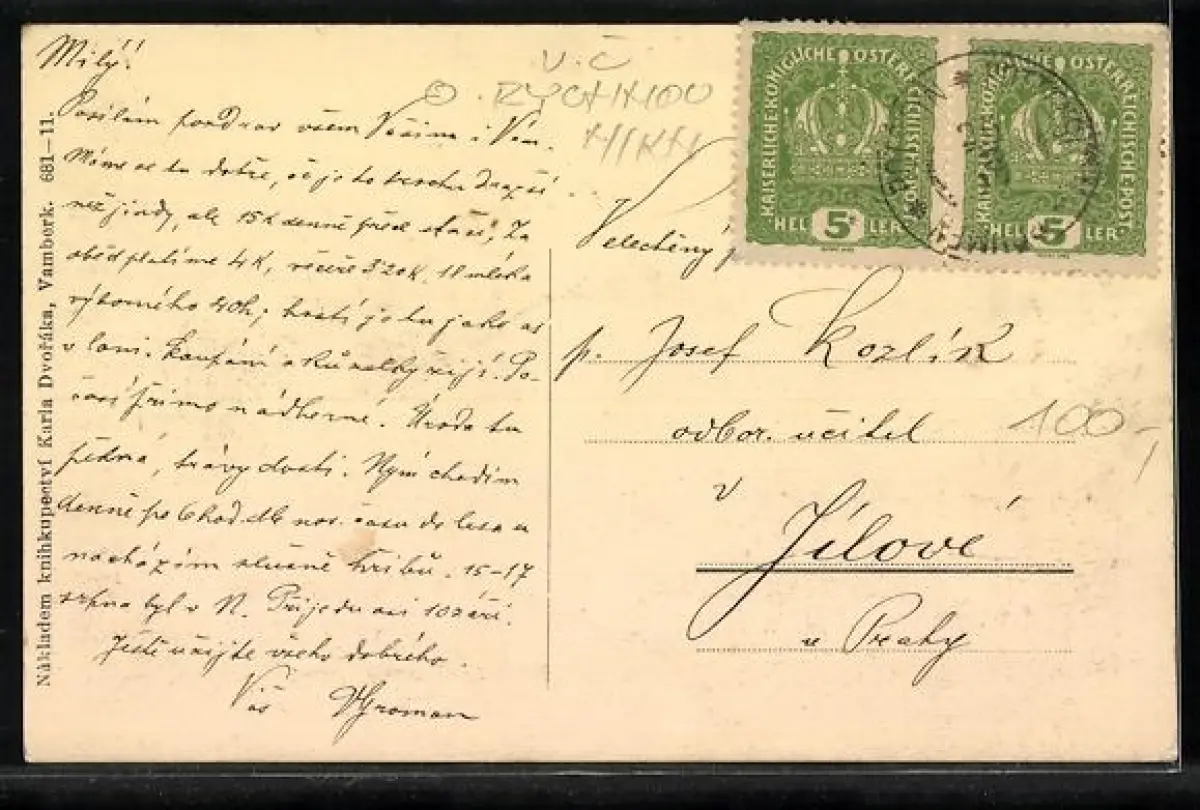 Milý!
Posílám pozdrav všem Vašim i Vám.
Máme se tu dobře, až je to trochu dražší
než jindy, ale 15 K denně přece stačí, Za
oběd platíme 4 K, večeře 3·20 K, 1 l mléka
výborného 40h; hostí je tu jako as
v loni. Koupání
Po-
časí přímo nádherné. Úroda tu
pěkná, trávy dosti. Nyní chodím
denně po 6 hod dle nov. času do lesa a
nacházím slušně hřibů. 15–17
srpna byl v N. Přijedu asi 10 září.
Ještě užijte všeho dobrého.
Váš Groman
Nákladem knihkupectví Karla Dvořáka, Vamberk. 681—11.
V.Č
RYCHNOV
Velectěný
p. Josef Kozlík
odbor. učitel
v
Jílové
u Prahy
100-,
KAISERLICHE·KÖNIGLICHE ÖSTERREICHISCHE·POST
HELLER 5
KAISERLICHE·KÖNIGLICHE ÖSTERREICHISCHE·POST
HELLER 5